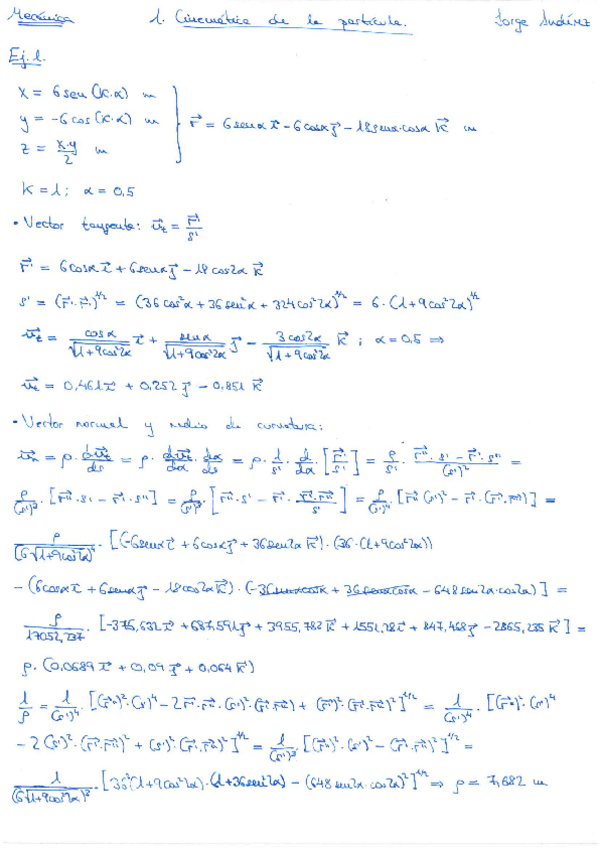 Mecánica 1. Cinemática de la partícula. Jorge
Ej. 1.
x = 6 sen (k·α) m
y = -6 cos (k·α) m
z = x·y/2 m
r⃗ = 6 senα i⃗ - 6 cosα j⃗ - 18 senα·cosα k⃗ m
K = 1; α = 0,5
• Vector tangente: u⃗t = r⃗'/s'
r⃗' = 6 cosα i⃗ + 6 senα j⃗ - 18 cos2α k⃗
s' = (r⃗'·r⃗')^1/2 = (36 cos²α + 36 sen²α + 324 cos²2α)^1/2 = 6·(1+9cos²2α)^1/2
u⃗t = cosα/√(1+9cos²2α) i⃗ + senα/√(1+9cos²2α) j⃗ - 3cos2α/√(1+9cos²2α) k⃗ ; α = 0,5 ⇒
u⃗t = 0,461 i⃗ + 0,252 j⃗ - 0,851 k⃗
• Vector normal y radio de curvatura:
u⃗n = ρ·du⃗t/ds = ρ·du⃗t/dα·dα/ds = ρ·1/s'·d/dα·[r⃗'/s'] = ρ/s'·(r⃗''·s' - r⃗'·s'')/(s')² =
ρ/(s')³·[r⃗''·s' - r⃗'·s''] = ρ/(s')³·[r⃗''·s' - r⃗'·(r⃗'·r⃗'')/s'] = ρ/(s')⁴·[r⃗''(s')² - r⃗'·(r⃗'·r⃗'')] =
ρ/(6√(1+9cos²2α))⁴·[(-6senα i⃗ + 6cosα j⃗ + 36sen2α k⃗)·(36·(1+9cos²2α))
- (6cosα i⃗ + 6senα j⃗ - 18cos2α k⃗)·(-36senαcosα + 36senαcosα - 648sen2α·cos2α)] =
ρ/17052,237·[-375,632 i⃗ + 687,591 j⃗ + 3955,782 k⃗ + 1551,28 i⃗ + 847,468 j⃗ - 2865,235 k⃗] =
ρ·(0,0689 i⃗ + 0,09 j⃗ + 0,064 k⃗)
1/ρ = 1/(s')⁴·[(r⃗'')²·(s')⁴ - 2r⃗'·r⃗''·(s')²·(r⃗'·r⃗'') + (r⃗')²(r⃗'·r⃗'')²]^1/2 = 1/(s')⁴·[(r⃗'')²·(s')⁴
- 2(s')²·(r⃗'·r⃗'')² + (s')²·(r⃗'·r⃗'')²]^1/2 = 1/(s')³·[(r⃗'')²·(s')² - (r⃗'·r⃗'')²]^1/2 =
1/(6√(1+9cos²2α))³·[36²(1+9cos²2α)·(1+36sen²2α) - (648sen2α·cos2α)²]^1/2 ⇒ ρ = 7,682 m